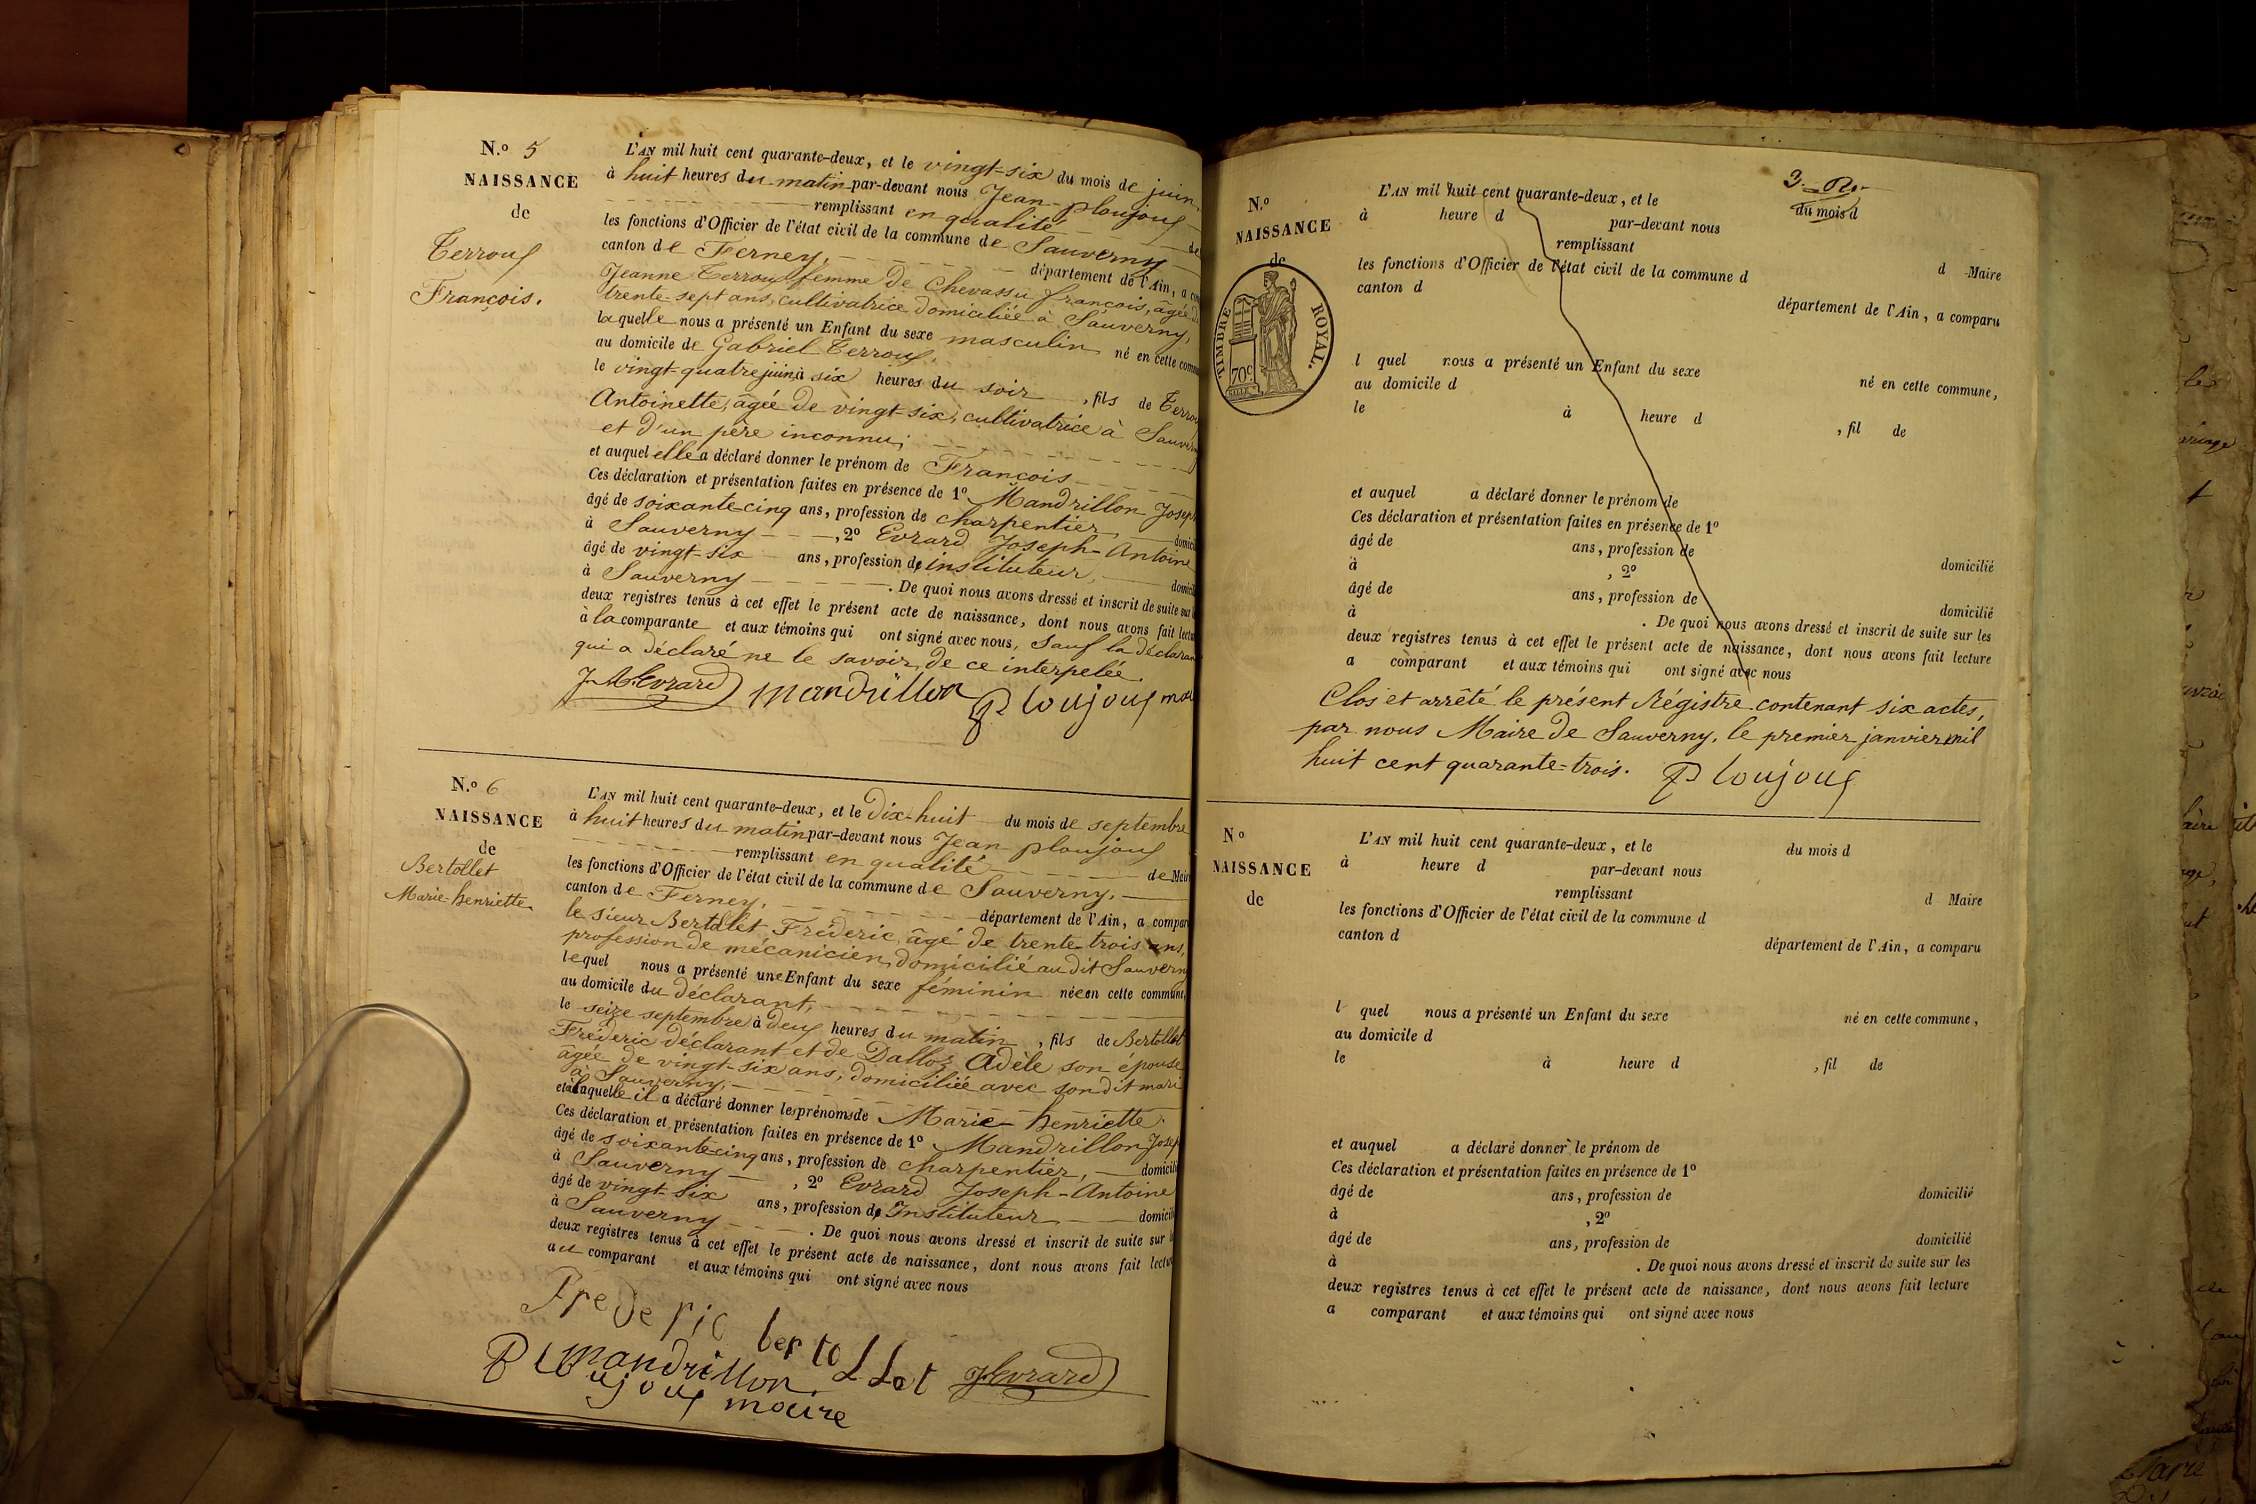 N.º 5
NAISSANCE
de
Terroux
François.
L'AN mil huit cent quarante-deux, et le vingt-six du mois de juin
à huit heures du matin par-devant nous Jean Ploujoux
remplissant en qualité de
les fonctions d'Officier de l'état civil de la commune de Sauverny
canton de Ferney, département de l'Ain, a
Jeanne Terroux femme de Chevassu françois, âgée de
trente-sept ans, cultivatrice domiciliée à Sauverny,
laquelle nous a présenté un Enfant du sexe masculin né en cette
au domicile de Gabriel Terroux.
le vingt-quatre juin à six heures du soir, fils de
Antoinette, âgée de vingt-six, cultivatrice à
et d'un père inconnu;
et auquel elle a déclaré donner le prénom de François
Ces déclaration et présentation faites en présence de 1º Mandrillon Joseph
âgé de soixante-cinq ans, profession de charpentier
à Sauverny, 2º Evrard Joseph-Antoine
âgé de vingt-six ans, profession de instituteur,
à Sauverny. De quoi nous avons dressé et inscrit de suite sur
deux registres tenus à cet effet le présent acte de naissance, dont nous avons fait
à la comparante et aux témoins qui ont signé avec nous, sauf la
qui a déclaré ne le savoir, de ce interpelée.
J. A. Evrard mandrillon Ploujoux
N.º 6
NAISSANCE
de
Bertollet
Marie-henriette
L'AN mil huit cent quarante-deux, et le Dix-huit du mois de septembre
à huit heures du matin par-devant nous Jean Ploujoux
remplissant en qualité de
les fonctions d'Officier de l'état civil de la commune de Sauverny,
canton de Ferney, département de l'Ain, a
le sieur Bertollet Fréderic, âgé de trente-trois ans,
profession de mécanicien, domicilié au dit
lequel nous a présenté une Enfant du sexe féminin née en cette commune,
au domicile du déclarant,
le seize septembre à deux heures du matin, fils de Bertollet
Fréderic déclarant et de Dalloz Adèle son épouse
âgée de vingt-six ans, domiciliée avec son dit mari
à Sauverny,
et à laquelle il a déclaré donner les prénoms de Marie-henriette.
Ces déclaration et présentation faites en présence de 1º Mandrillon
âgé de soixante-cinq ans, profession de charpentier,
à Sauverny, 2º Evrard Joseph-Antoine
âgé de vingt-six ans, profession de Instituteur
à Sauverny. De quoi nous avons dressé et inscrit de suite sur
deux registres tenus à cet effet le présent acte de naissance, dont nous avons fait
au comparant et aux témoins qui ont signé avec nous
Frederic bertoLLet
mandrillon J. Evrard
Ploujoux moire
N.º
NAISSANCE
de
TIMBRE ROYAL.
70 c
L'AN mil huit cent quarante-deux, et le du mois d
à heure d par-devant nous
remplissant d Maire
les fonctions d'Officier de l'état civil de la commune d
canton d département de l'Ain, a comparu
l quel nous a présenté un Enfant du sexe né en cette commune,
au domicile d
le à heure d, fil de
et auquel a déclaré donner le prénom de
Ces déclaration et présentation faites en présence de 1º
âgé de ans, profession de domicilié
à, 2º
âgé de ans, profession de domicilié
à. De quoi nous avons dressé et inscrit de suite sur les
deux registres tenus à cet effet le présent acte de naissance, dont nous avons fait lecture
a comparant et aux témoins qui ont signé avec nous
Clos et arrêté le présent Régistre contenant six actes,
par nous Maire de Sauverny, le premier janvier mil
huit cent quarante-trois. Ploujoux
Nº
NAISSANCE
de
L'AN mil huit cent quarante-deux, et le du mois d
à heure d par-devant nous
remplissant d Maire
les fonctions d'Officier de l'état civil de la commune d
canton d département de l'Ain, a comparu
l quel nous a présenté un Enfant du sexe né en cette commune,
au domicile d
le à heure d, fil de
et auquel a déclaré donner le prénom de
Ces déclaration et présentation faites en présence de 1º
âgé de ans, profession de domicilié
à, 2º
âgé de ans, profession de domicilié
à. De quoi nous avons dressé et inscrit de suite sur les
deux registres tenus à cet effet le présent acte de naissance, dont nous avons fait lecture
a comparant et aux témoins qui ont signé avec nous